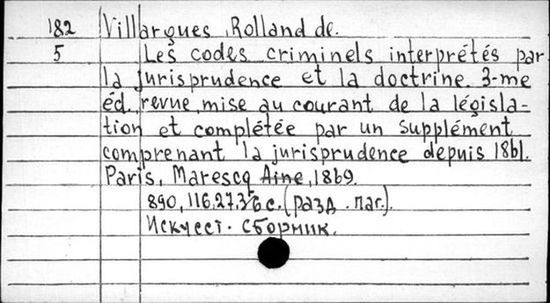 182 Villargues, Rolland de.
5 Les codes criminels interprétés par
la jurisprudence et la doctrine. 3-me
éd. revue, mise au courant de la législa-
tion et complétée par un supplément
comprenant la jurisprudence depuis 1861.
Paris, Marescq Aine, 1869.
890, 116, 27, 36 с. (разд. паг.).
Искусст. сборник.